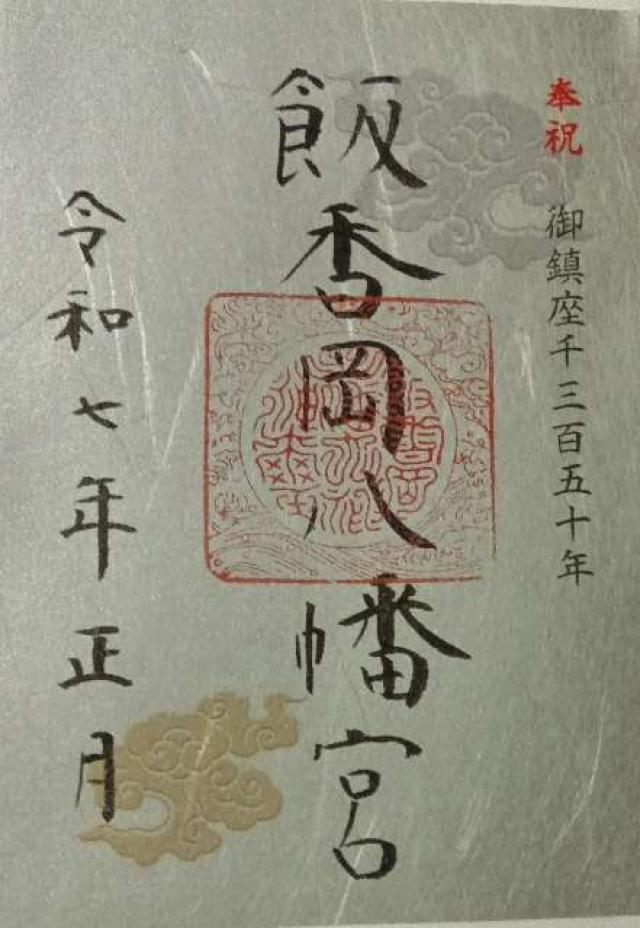 奉祝
御鎮座千三百五十年
飯香岡八幡宮
令和七年正月